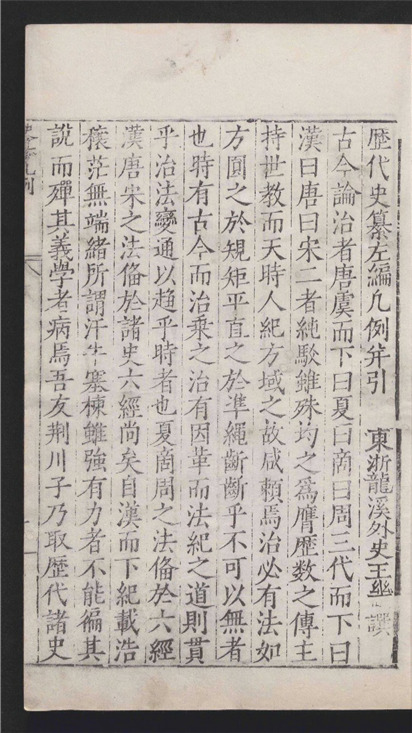 歷代史纂左編凡例并引 東浙龍溪外史王畿 譔
古今論治者唐虞而下曰夏曰商曰周三代而下曰
漢曰唐曰宋二者純駁雖殊均之爲膺歷數之傳主
持世教而天時人紀方域之故咸賴焉治必有法如
方圓之於規矩平直之於準繩斷斷乎不可以無者
也時有古今而治乘之治有因革而法紀之道則貫
乎治法變通以趨乎時者也夏商周之法偹於六經
漢唐宋之法偹於諸史六經尚矣自漢而下紀載浩
穰茫無端緒所謂汗牛塞棟雖強有力者不能徧其
說而殫其義學者病焉吾友荆川子乃取歷代諸史
凡例